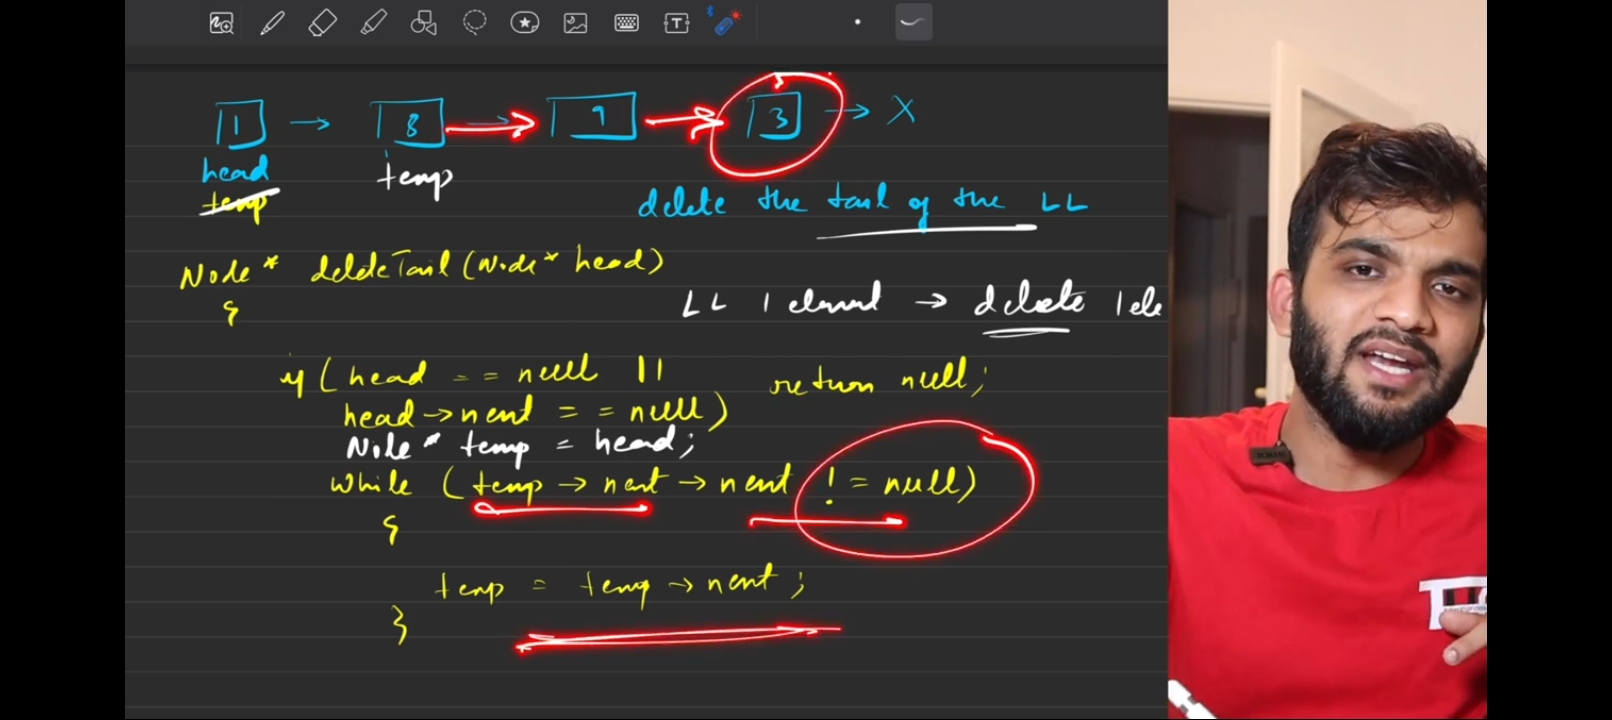 1 → 8 → 9 → 3 → X
head
temp
temp
delete the tail of the LL
Node * deleteTail (Node * head)
{
LL 1 element → delete 1 ele
if ( head == null ||
head → next == null)
return null;
Node * temp = head;
while ( temp → next → next != null)
{
temp = temp → next ;
}